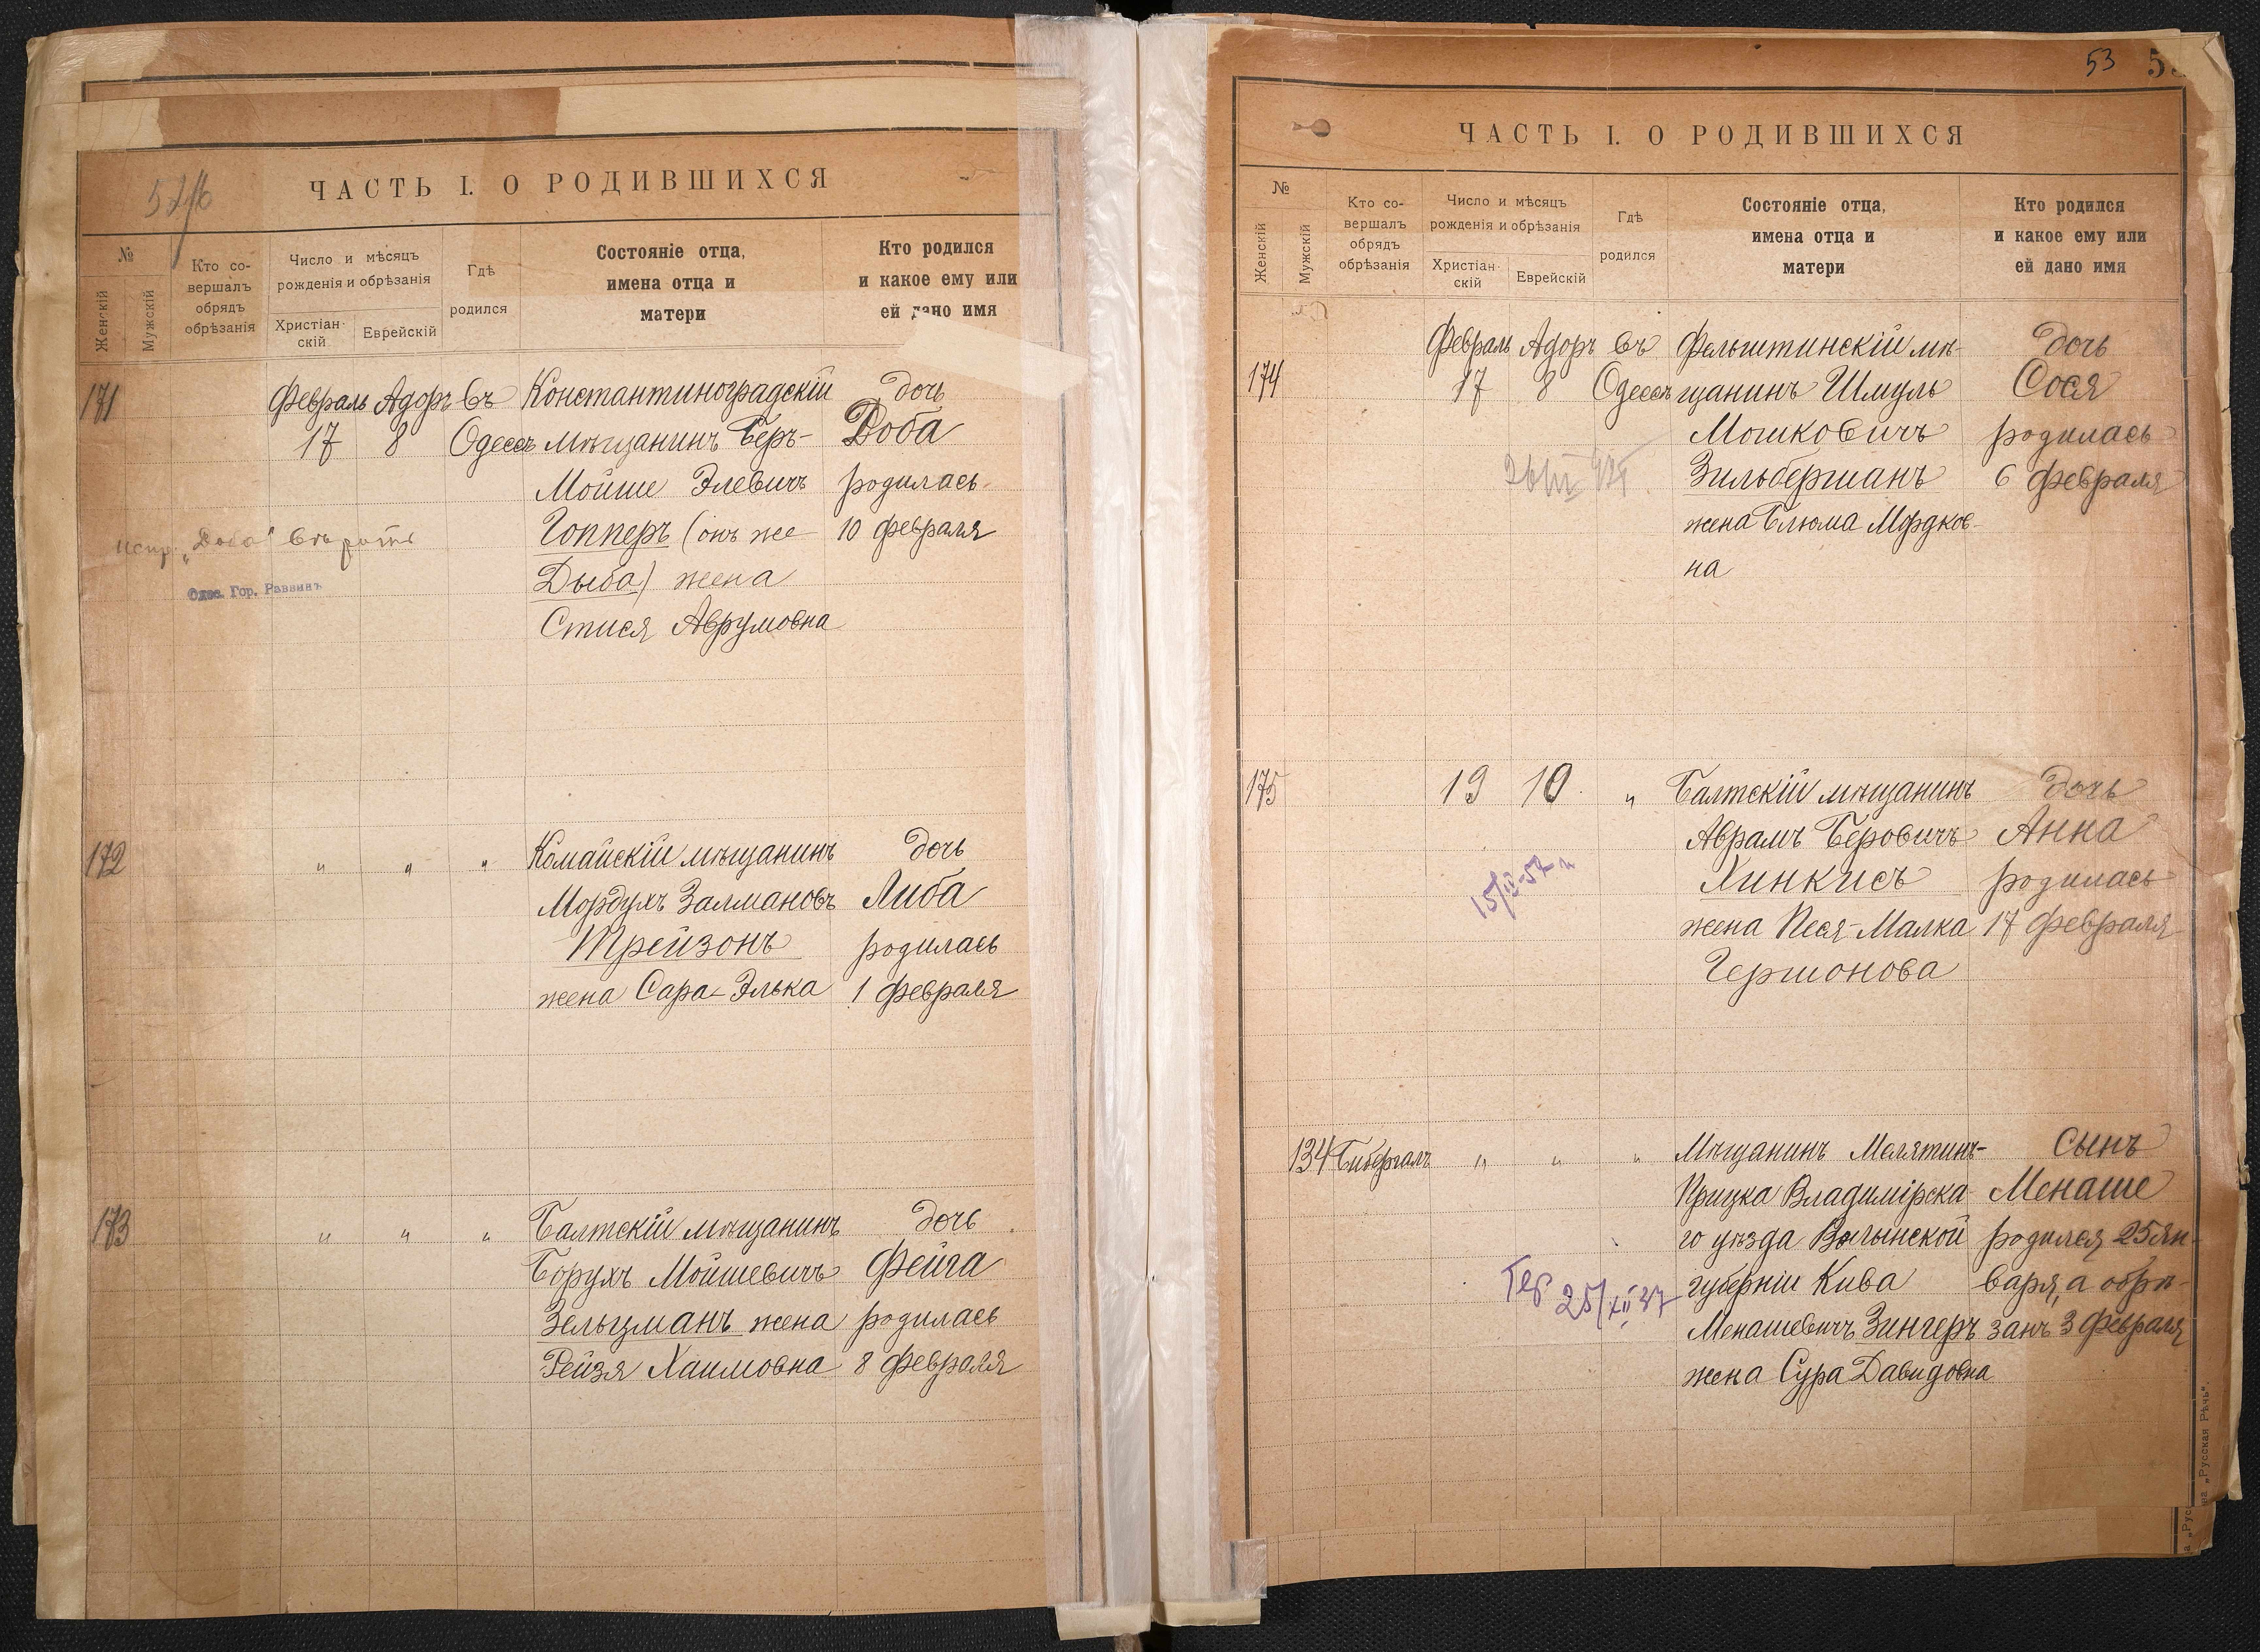 ЧАСТЬ I. О РОДИВШИХСЯ
№
Женскій
Мужскій
Кто со-
вершалъ
обрядъ
обрѣзанія
Число и мѣсяцъ
рожденія и обрѣзанія
Христіан-
скій
Еврейскій
Гдѣ
родился
Состояніе отца,
имена отца и
матери
Кто родился
и какое ему или
ей дано имя
171 Февраль Адоръ въ Константиноградскій дочь
17 8 Одессѣ мѣщанинъ Беръ- Доба
Мойше Элевичъ родилась
Гопперъ (онъ же 10 февраля
Дыба) жена
Стися Аврумовна
испр. „Доба" вѣрить
Одес. Гор. Раввинъ
172 " " " Комайскій мѣщанинъ дочь
Мордухъ Залмановъ Либа
Трейзонъ родилась
жена Сара-Элька 1 февраля
173 " " " Балтскій мѣщанинъ дочь
Борухъ Мойшевичъ Фейга
Зельцманъ жена родилась
Рейзя Хаимовна 8 февраля
53
ЧАСТЬ I. О РОДИВШИХСЯ
№
Женскій
Мужскій
Кто со-
вершалъ
обрядъ
обрѣзанія
Число и мѣсяцъ
рожденія и обрѣзанія
Христіан-
скій
Еврейскій
Гдѣ
родился
Состояніе отца,
имена отца и
матери
Кто родился
и какое ему или
ей дано имя
Февраль Адоръ въ Фельштинскій мѣ- дочь
174 17 8 Одессѣ щанинъ Шмуль Сося
Мошковичъ родилась
Зильберманъ 6 февраля
жена Блюма Мордков-
на
175 19 10 " Балтскій мѣщанинъ дочь
Аврамъ Беровичъ Анна
Хинкисъ родилась
жена Песя-Малка 17 февраля
Гершонова
15/IV-57
134 Бибергалъ " " " Мѣщанинъ Мелятинъ- сынъ
Прицка Владимірска- Менаше
го уѣзда Волынской родился 25 ян-
губерніи Кива варя, а обрѣ-
Менашевичъ Зингеръ занъ 3 февраля
жена Сура Давидовна
25/XII 37
„Русская Рѣчь".